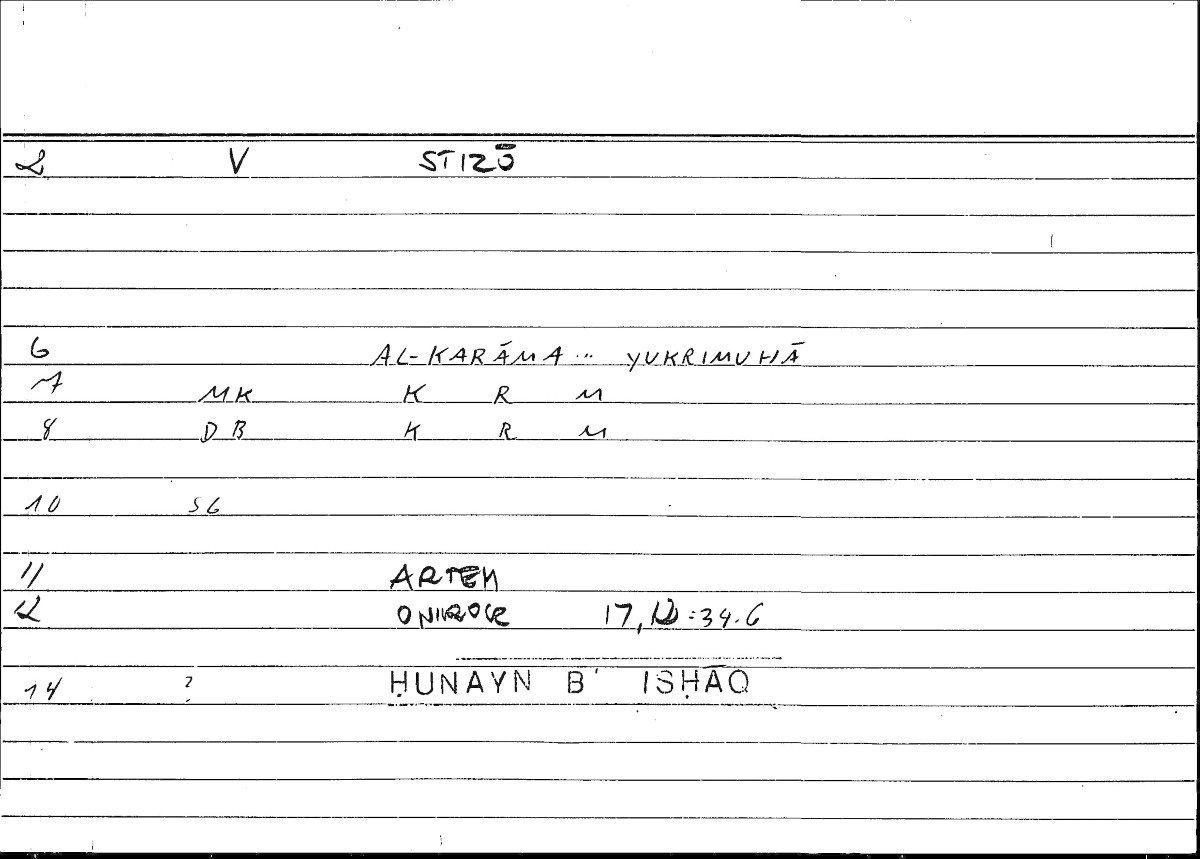 2 V STIZŌ
6 AL-KARĀMA ... YUKRIMUHĀ
7 MK K R M
8 DB K R M
10 SG
11 ARTEM
2 ONIROCR 17, 12 : 34.6
14 ? ḤUNAYN B' ISḤĀQ